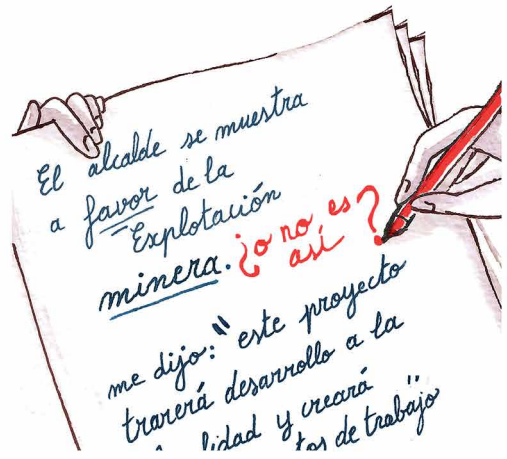 El alcalde se muestra
a favor de la
Explotación
minera. ¿o no es
así?
me dijo: "este proyecto
trarerá desarrollo a la
lidad y creará
tos de trabajo"